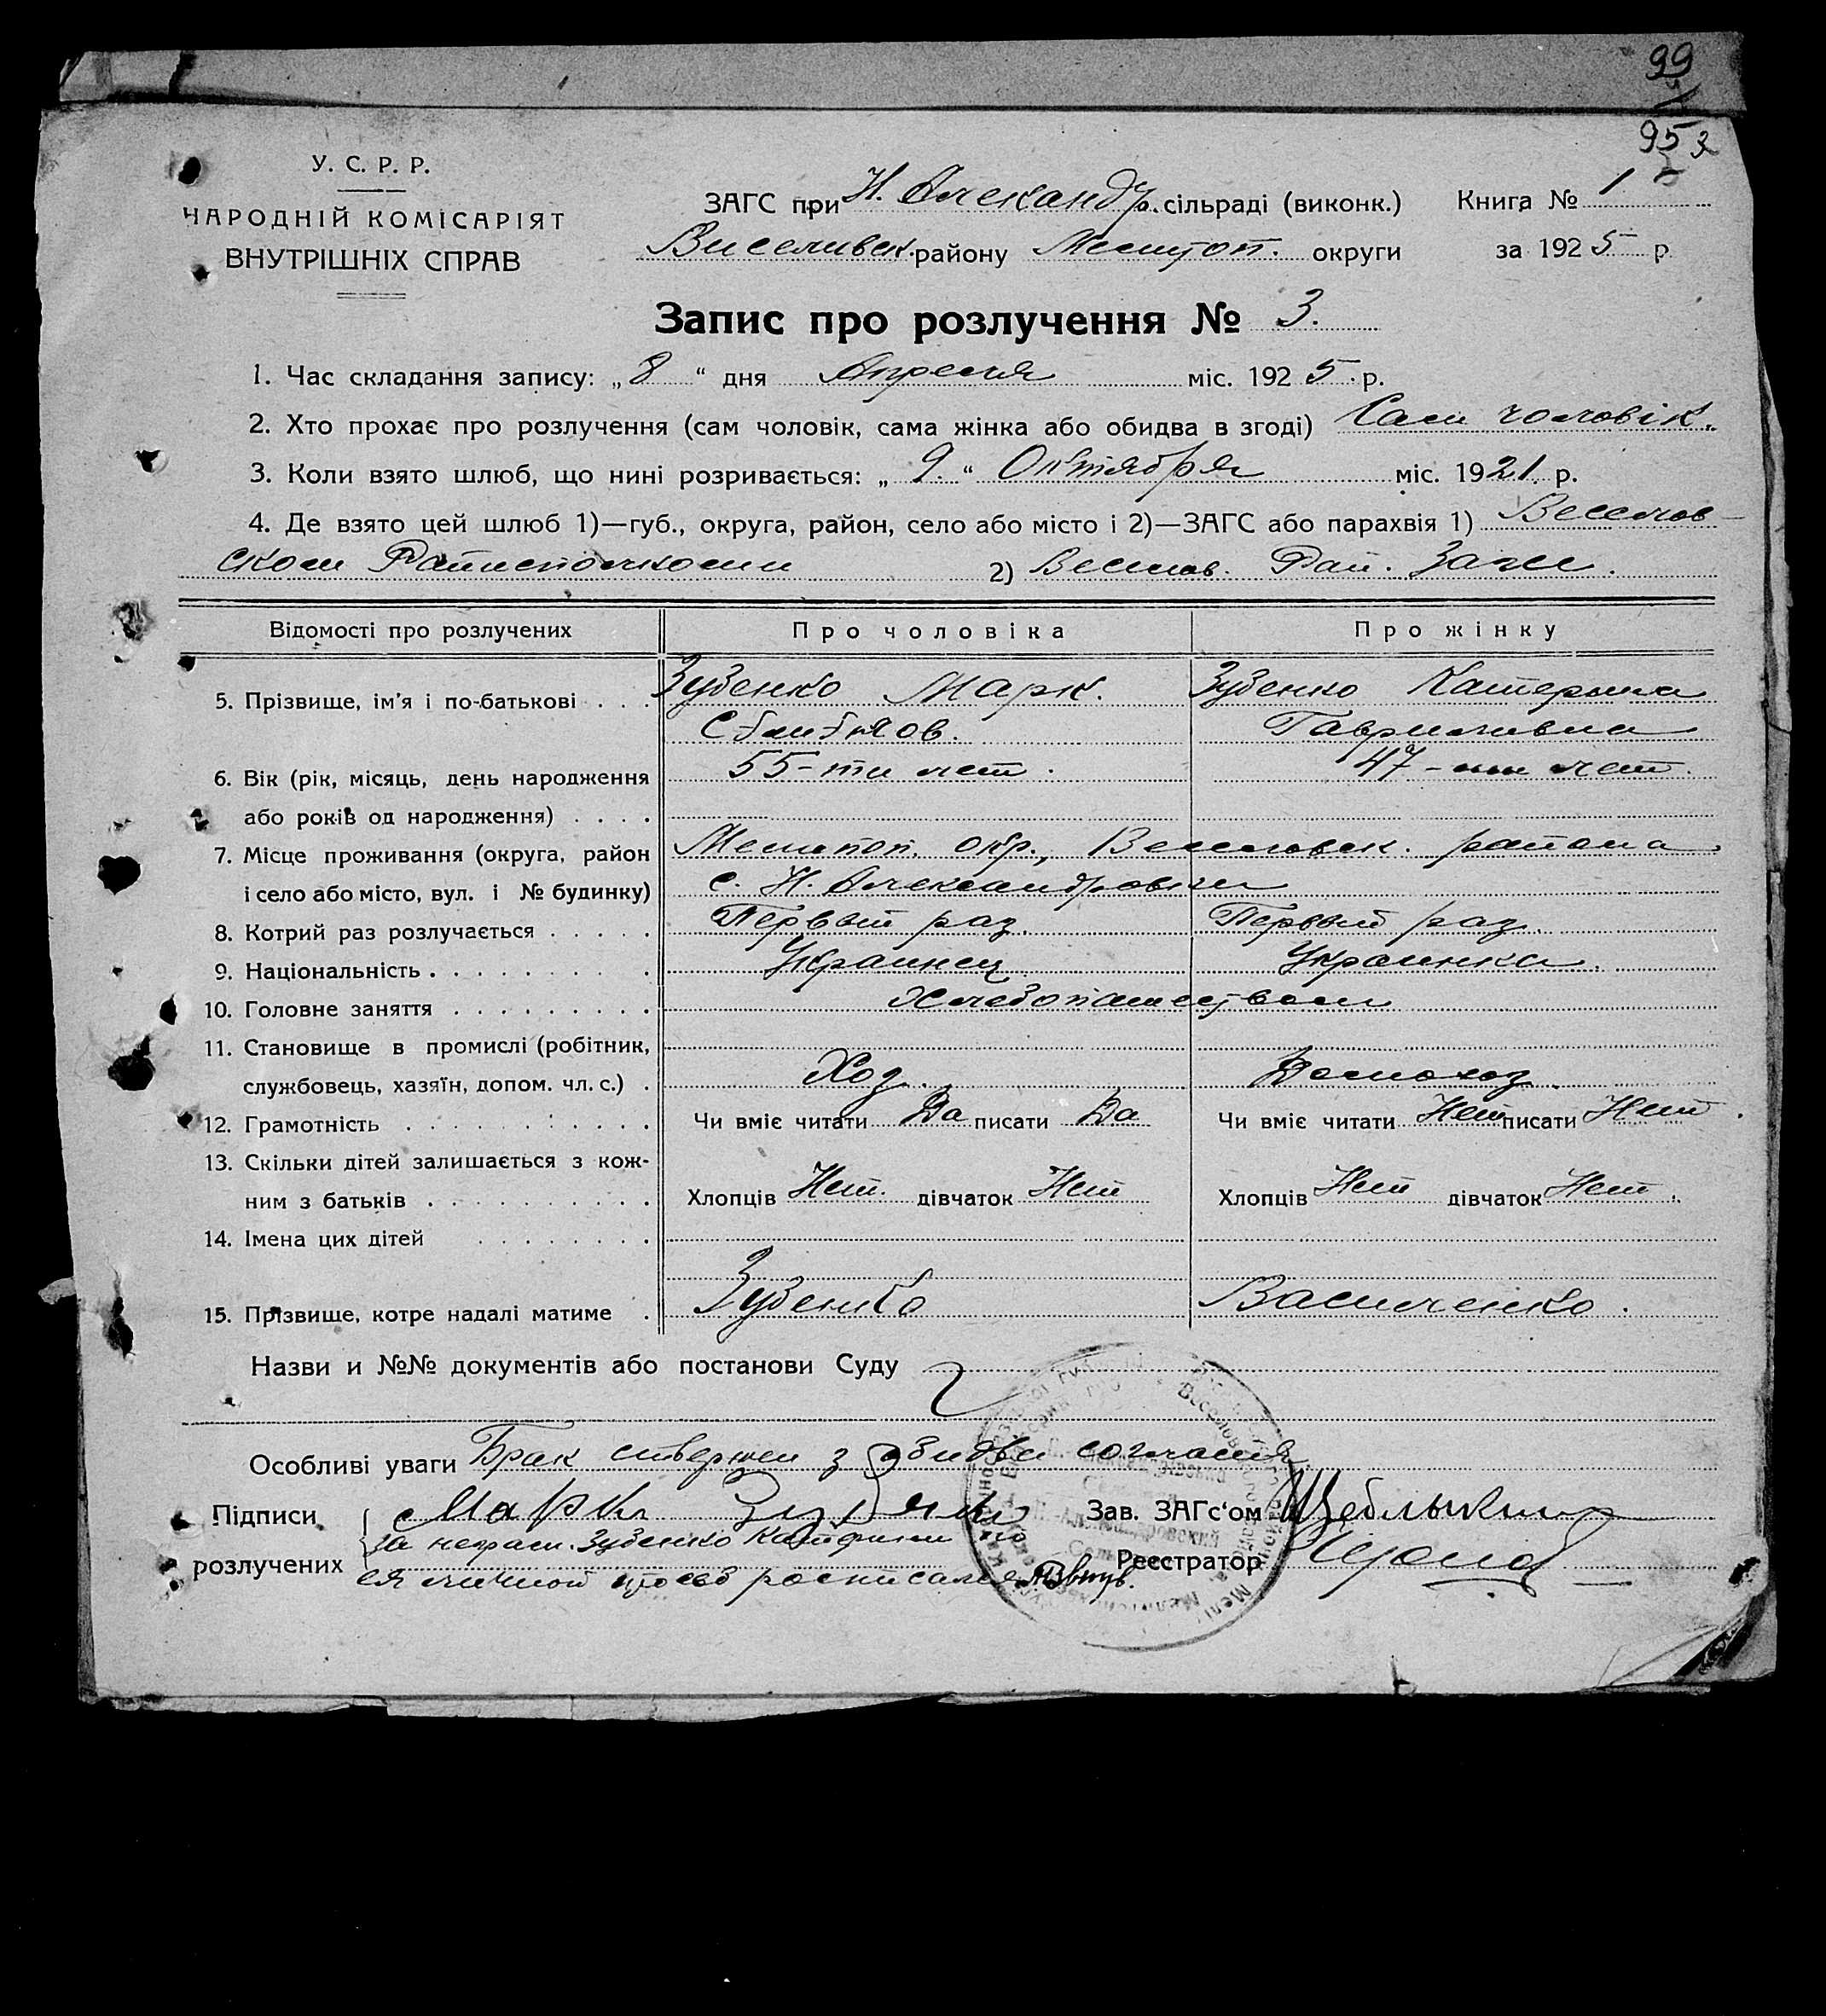 99
95 3
У. С. Р. Р.
НАРОДНІЙ КОМІСАРІЯТ
ВНУТРІШНІХ СПРАВ
ЗАГС при Н. Александр. сільраді (виконк.) Книга № 1
Виселивск. району Мелитоп. округи за 1925 р.
Запис про розлучення № 3.
1. Час складання запису: „8“ дня Апреля міс. 1925 р.
2. Хто прохає про розлучення (сам чоловік, сама жінка або обидва в згоді) Сам чоловік.
3. Коли взято шлюб, що нині розривається: „9.“ Октября міс. 1921 р.
4. Де взято цей шлюб 1)—губ., округа, район, село або місто і 2)—ЗАГС або парахвія 1) Веселов-
ском Райисполкоми 2) Веселов. Рай. Загсе.
Відомості про розлучених Про чоловіка Про жінку
5. Прізвище, ім'я і по-батькові . . . Зубенко Марк. Зубенко Катерына
Гавриливна
6. Вік (рік, місяць, день народження 55-ти лет. 47- лет.
або років од народження) . . . .
7. Місце проживання (округа, район Мелитоп. окр., Веселовск. района
і село або місто, вул. і № будинку) с. Н. Александровки
8. Котрий раз розлучається . . . . . Первый раз. Первый раз.
9. Національність . . . . . . . . . Украинец Украинка.
10. Головне заняття . . . . . . . . . Хлебопашеством
11. Становище в промислі (робітник,
службовець, хазяїн, допом. чл. с.) . Хоз. Домохоз.
12. Грамотність . . . . . . . . . . Чи вміє читати Да писати Да Чи вміє читати Нет писати Нет.
13. Скільки дітей залишається з кож-
ним з батьків . . . . . . . . . . Хлопців Нет. дівчаток Нет Хлопців Нет дівчаток Нет.
14. Імена цих дітей . . . . . . . .
15. Прізвище, котре надалі матиме . Зубенко Васиченко.
Назви и №№ документів або постанови Суду
Особливі уваги Брак з обидва согласия
Підписи Марк Зубенко Зав. ЗАГс'ом Щеблыкин
розлучених За неграм. Зубенко Катерини
ея личной просьб росписался Реєстратор